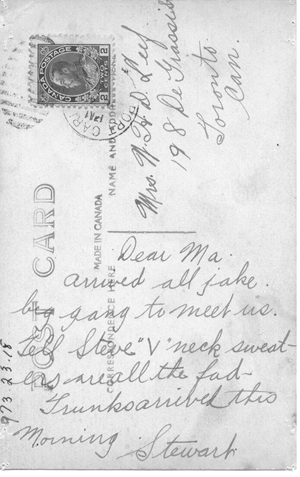 CANADA POSTAGE
2 CENTS 2
Mrs. N. H. D. Leef
198 De Grassi St
Toronto
Can.
NAME AND ADDRESS
MADE IN CANADA
POST CARD
CORRESPONDENCE HERE
Dear Ma.
arrived all jake.
big gang to meet us.
Tell Steve "V" neck sweat-
ers are all the fad-
Trunks arrived this
Morning Stewart
973.23.18